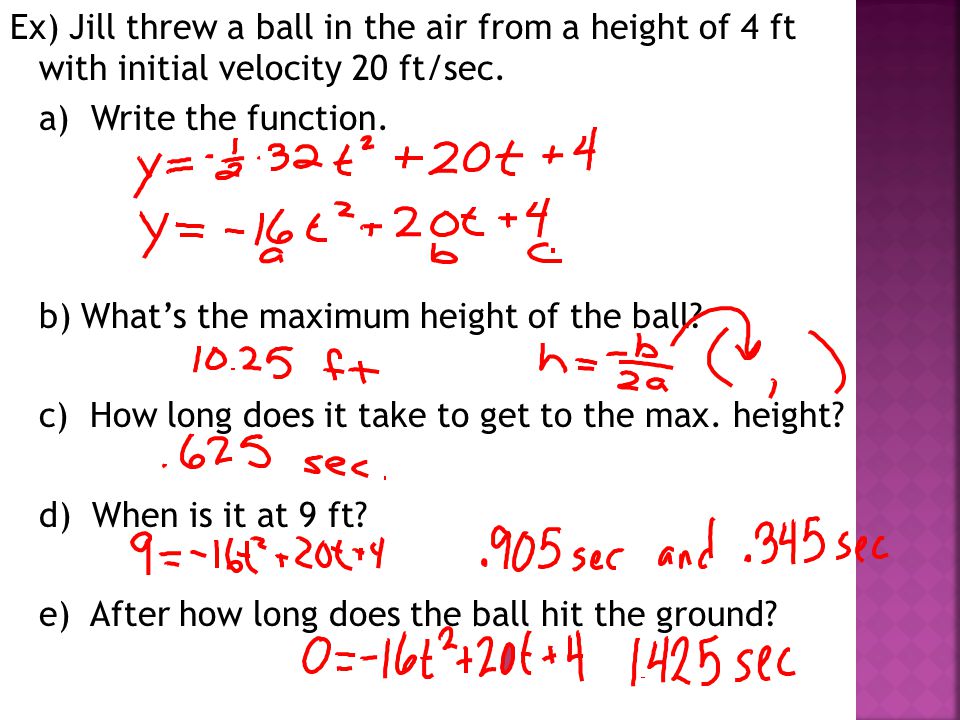 Ex) Jill threw a ball in the air from a height of 4 ft
with initial velocity 20 ft/sec.
a) Write the function.
y = -½·32t² + 20t + 4
y = -16t² + 20t + 4
a b c
b) What’s the maximum height of the ball?
10.25 ft h = -b/2a ( , )
c) How long does it take to get to the max. height?
.625 sec.
d) When is it at 9 ft?
9 = -16t² + 20t + 4 .905 sec and .345 sec
e) After how long does the ball hit the ground?
0 = -16t² + 20t + 4 1.425 sec